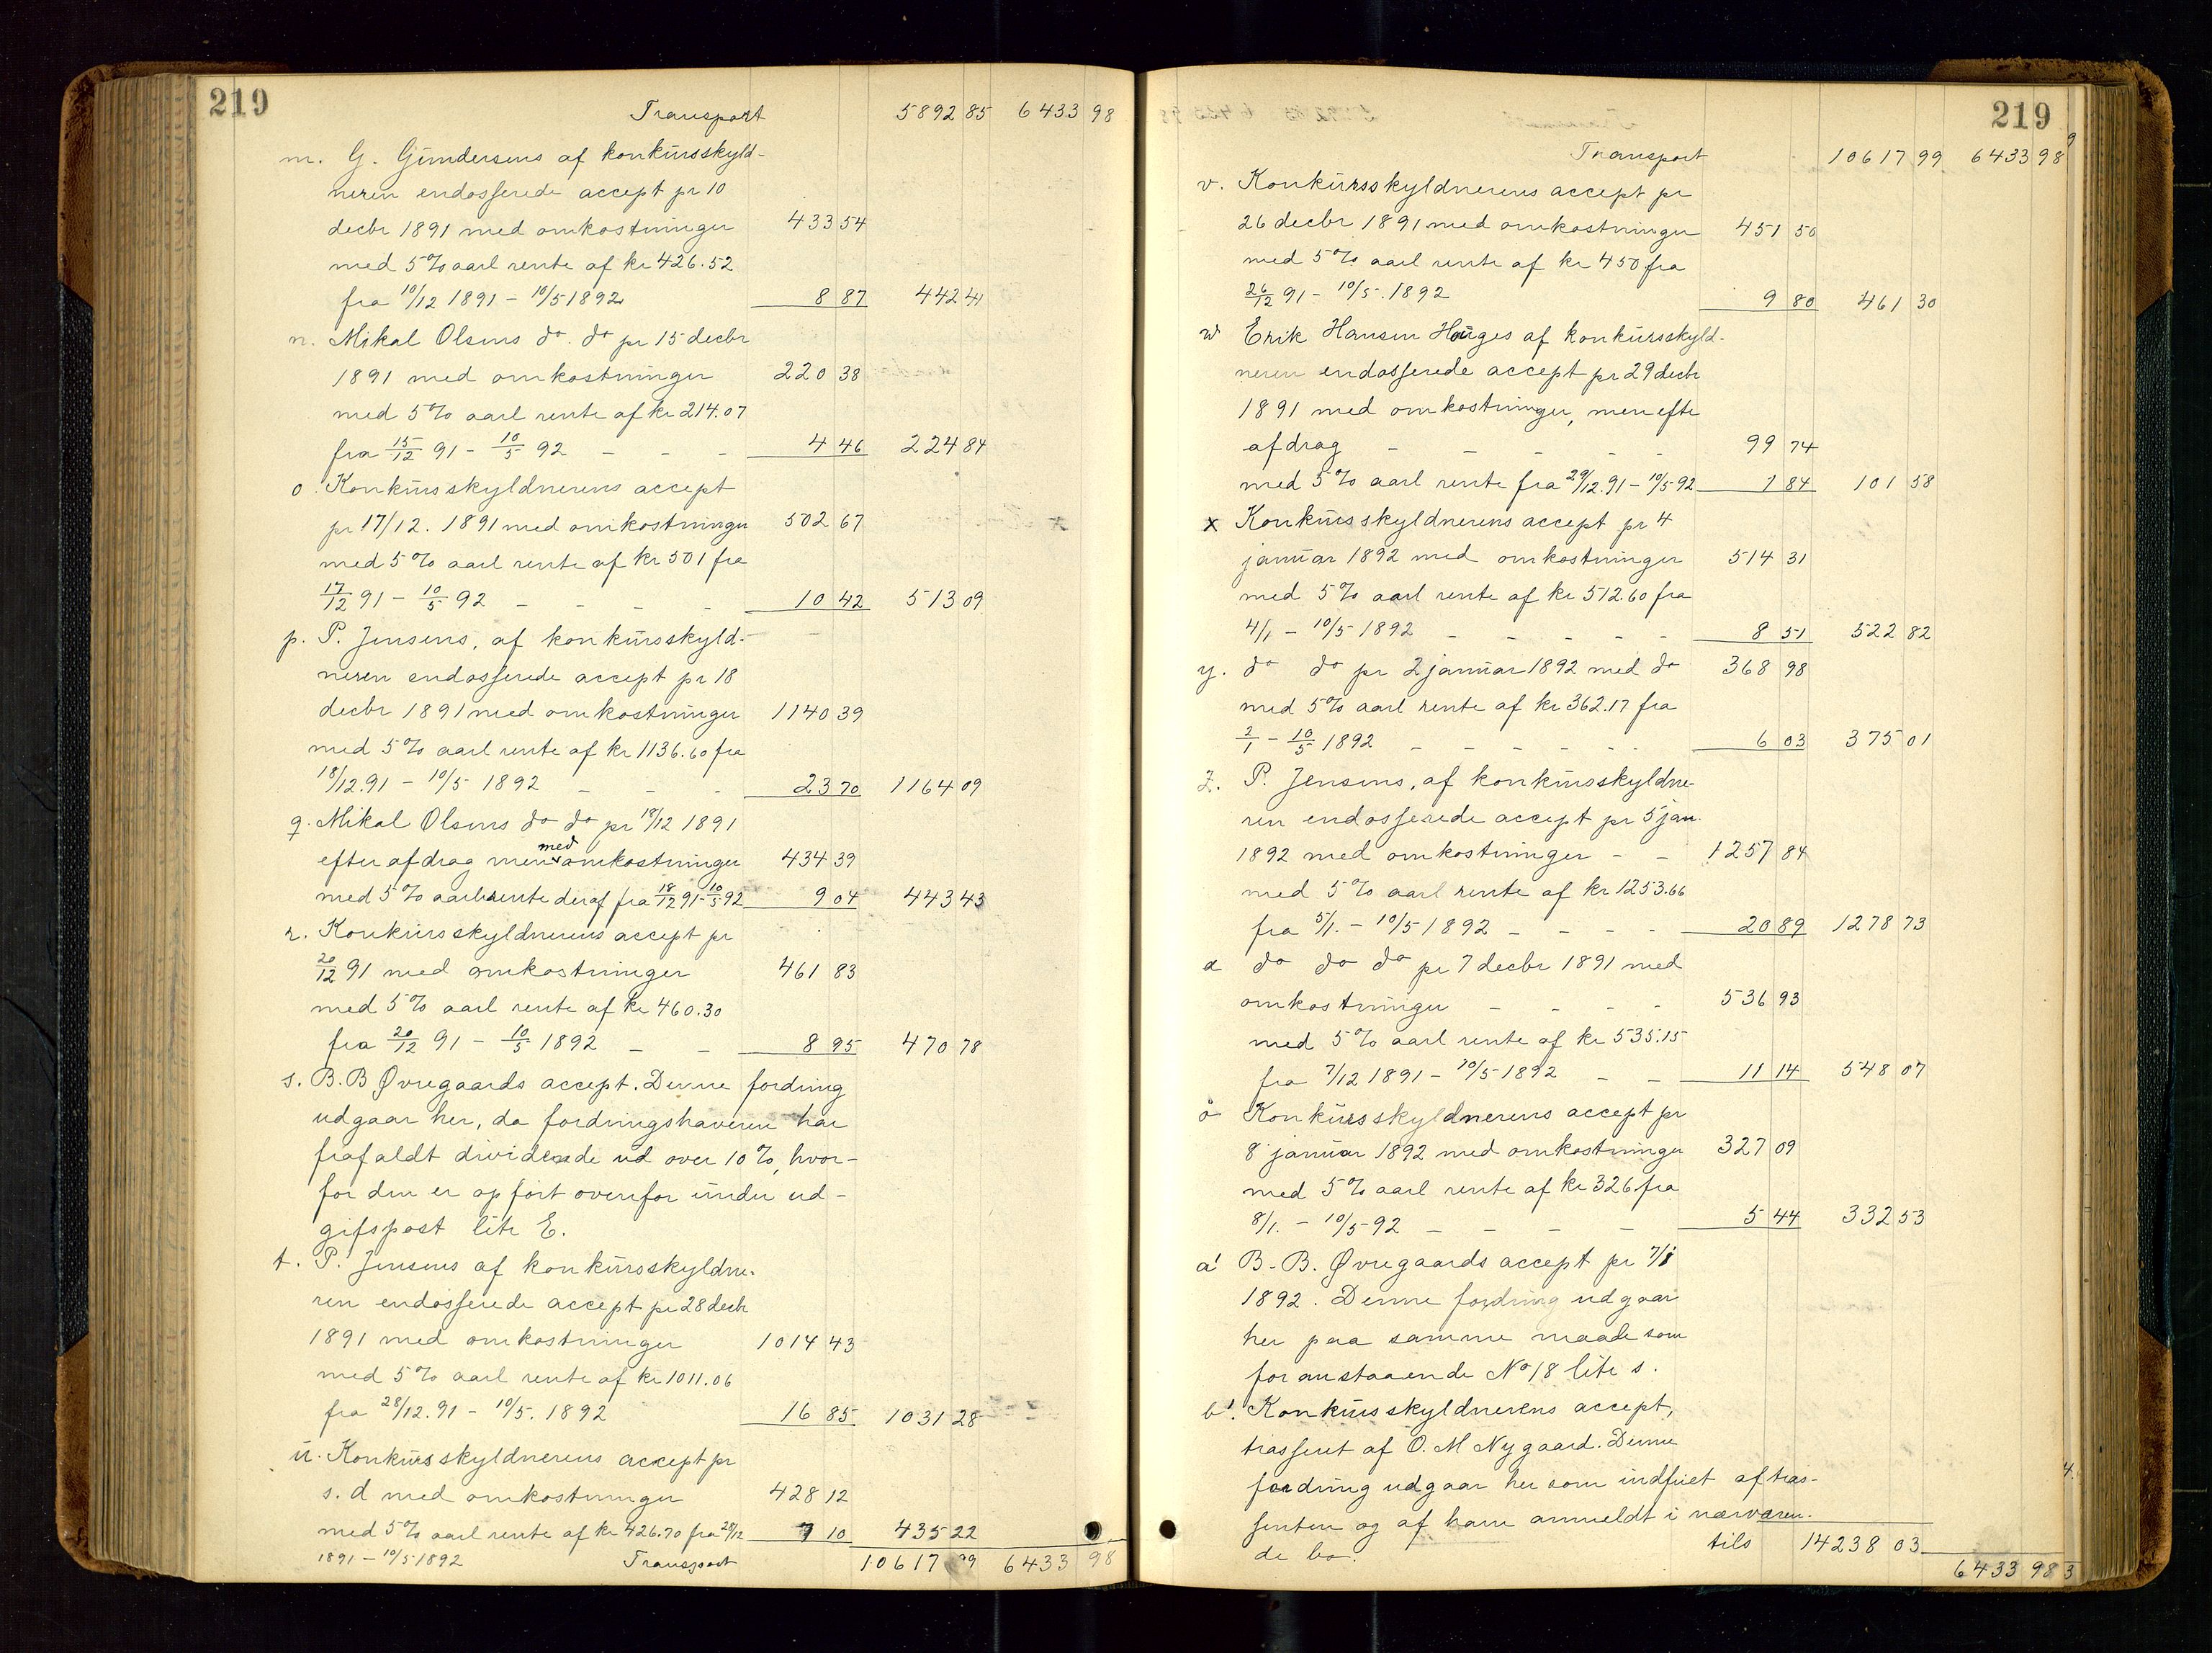 219
Transport 5892 85 6433 98
m. G. Gundersens af konkursskyld-
neren endosserede accept pr 10
decbr 1891 med omkostninger 433 54
med 5% aarl rente af kr 426.52
fra 10/12 1891 - 10/5 1892 8 87 442 41
n. Mikal Olsens do. do pr 15 decbr
1891 med omkostninger 220 38
med 5% aarl rente af kr 214.07
fra 15/12 91 - 10/5 92 - - - 4 46 224 84
o. Konkursskyldnerens accept
pr 17/12. 1891 med omkostninger 502 67
med 5% aarl rente af kr 501 fra
17/12 91 - 10/5 92 - - - - 10 42 513 09
p. P. Jensens, af konkursskyld-
neren endosserede accept pr 18
decbr 1891 med omkostninger 1140 39
med 5% aarl rente af kr 1136.60 fra
18/12.91 - 10/5 1892 - - - 23 70 1164 09
q. Mikal Olsens do do pr 18/12 1891
efter afdrag men med omkostninger 434 39
med 5% aarl rente deraf fra 18/12 91-10/5 92 9 04 443 43
r. Konkursskyldnerens accept pr
20/12 91 med omkostninger 461 83
med 5% aarl rente af kr 460.30
fra 20/12 91 - 10/5 1892 - - 8 95 470 78
s. B.B Øvregaards accept. Denne fordring
udgaar her, da fordringshaveren har
frafaldt dividende ud over 10%, hvor-
for den er opført ovenfor under ud-
gifspost litr E.
t. P. Jensens af konkursskyldne-
ren endosserede accept pr 28 decbr
1891 med omkostninger 1014 43
med 5% aarl rente af kr 1011.06
fra 28/12.91 - 10/5. 1892 16 85 1031 28
u. Konkursskyldnerens accept pr
s. d med omkostninger 428 12
med 5% aarl rente af kr 426.70 fra 28/12 7 10 435 22
1891 - 10/5 1892 Transport 10617 99 6433 98
219
Transport 10617 99 6433 98
v. Konkursskyldnerens accept pr
26 decbr 1891 med omkostninger 451 50
med 5% aarl rente af kr 450 fra
26/12 91 - 10/5. 1892 9 80 461 30
w Erik Hansen Hauges af konkursskyld-
neren endosserede accept pr 29 decbr
1891 med omkostninger, men efter
afdrag - - - - - 99 74
med 5% aarl rente fra 29/12.91 - 10/5 92 1 84 101 58
x Konkursskyldnerens accept pr 4
januar 1892 med omkostninger 514 31
med 5% aarl rente af kr 512.60 fra
4/1 - 10/5 1892 - - - - - 8 51 522 82
y. do do pr 2 januar 1892 med do 368 98
med 5% aarl rente af kr 362.17 fra
2/1 - 10/5 1892 - - - - - - 6 03 375 01
z. P. Jensens, af konkursskyldne-
ren endosserede accept pr 5 jan.
1892 med omkostninger - - 1257 84
med 5% aarl rente af kr 1253.66
fra 5/1. - 10/5 1892 - - - - 20 89 1278 73
æ do do do pr 7 decbr 1891 med
omkostninger - - - - 536 93
med 5% aarl rente af kr 535.15
fra 7/12 1891 - 10/5 1892 - - 11 14 548 07
ø Konkursskyldnerens accept pr
8 januar 1892 med omkostninger 327 09
med 5% aarl rente af kr 326 fra
8/1. - 10/5 92 - - - - 5 44 332 53
a' B. B. Øvregaards accept pr 7/1
1892. Denne fordring udgaar
her paa samme maade som
foranstaaende No 18 litr s.
b'. Konkursskyldnerens accept,
trasseret af O. M Nygaard. Denne
fordring udgaar her som indfriet af tras-
senten og af ham anmeldt i nærværen-
de bo. tils 14238 03
6433 98